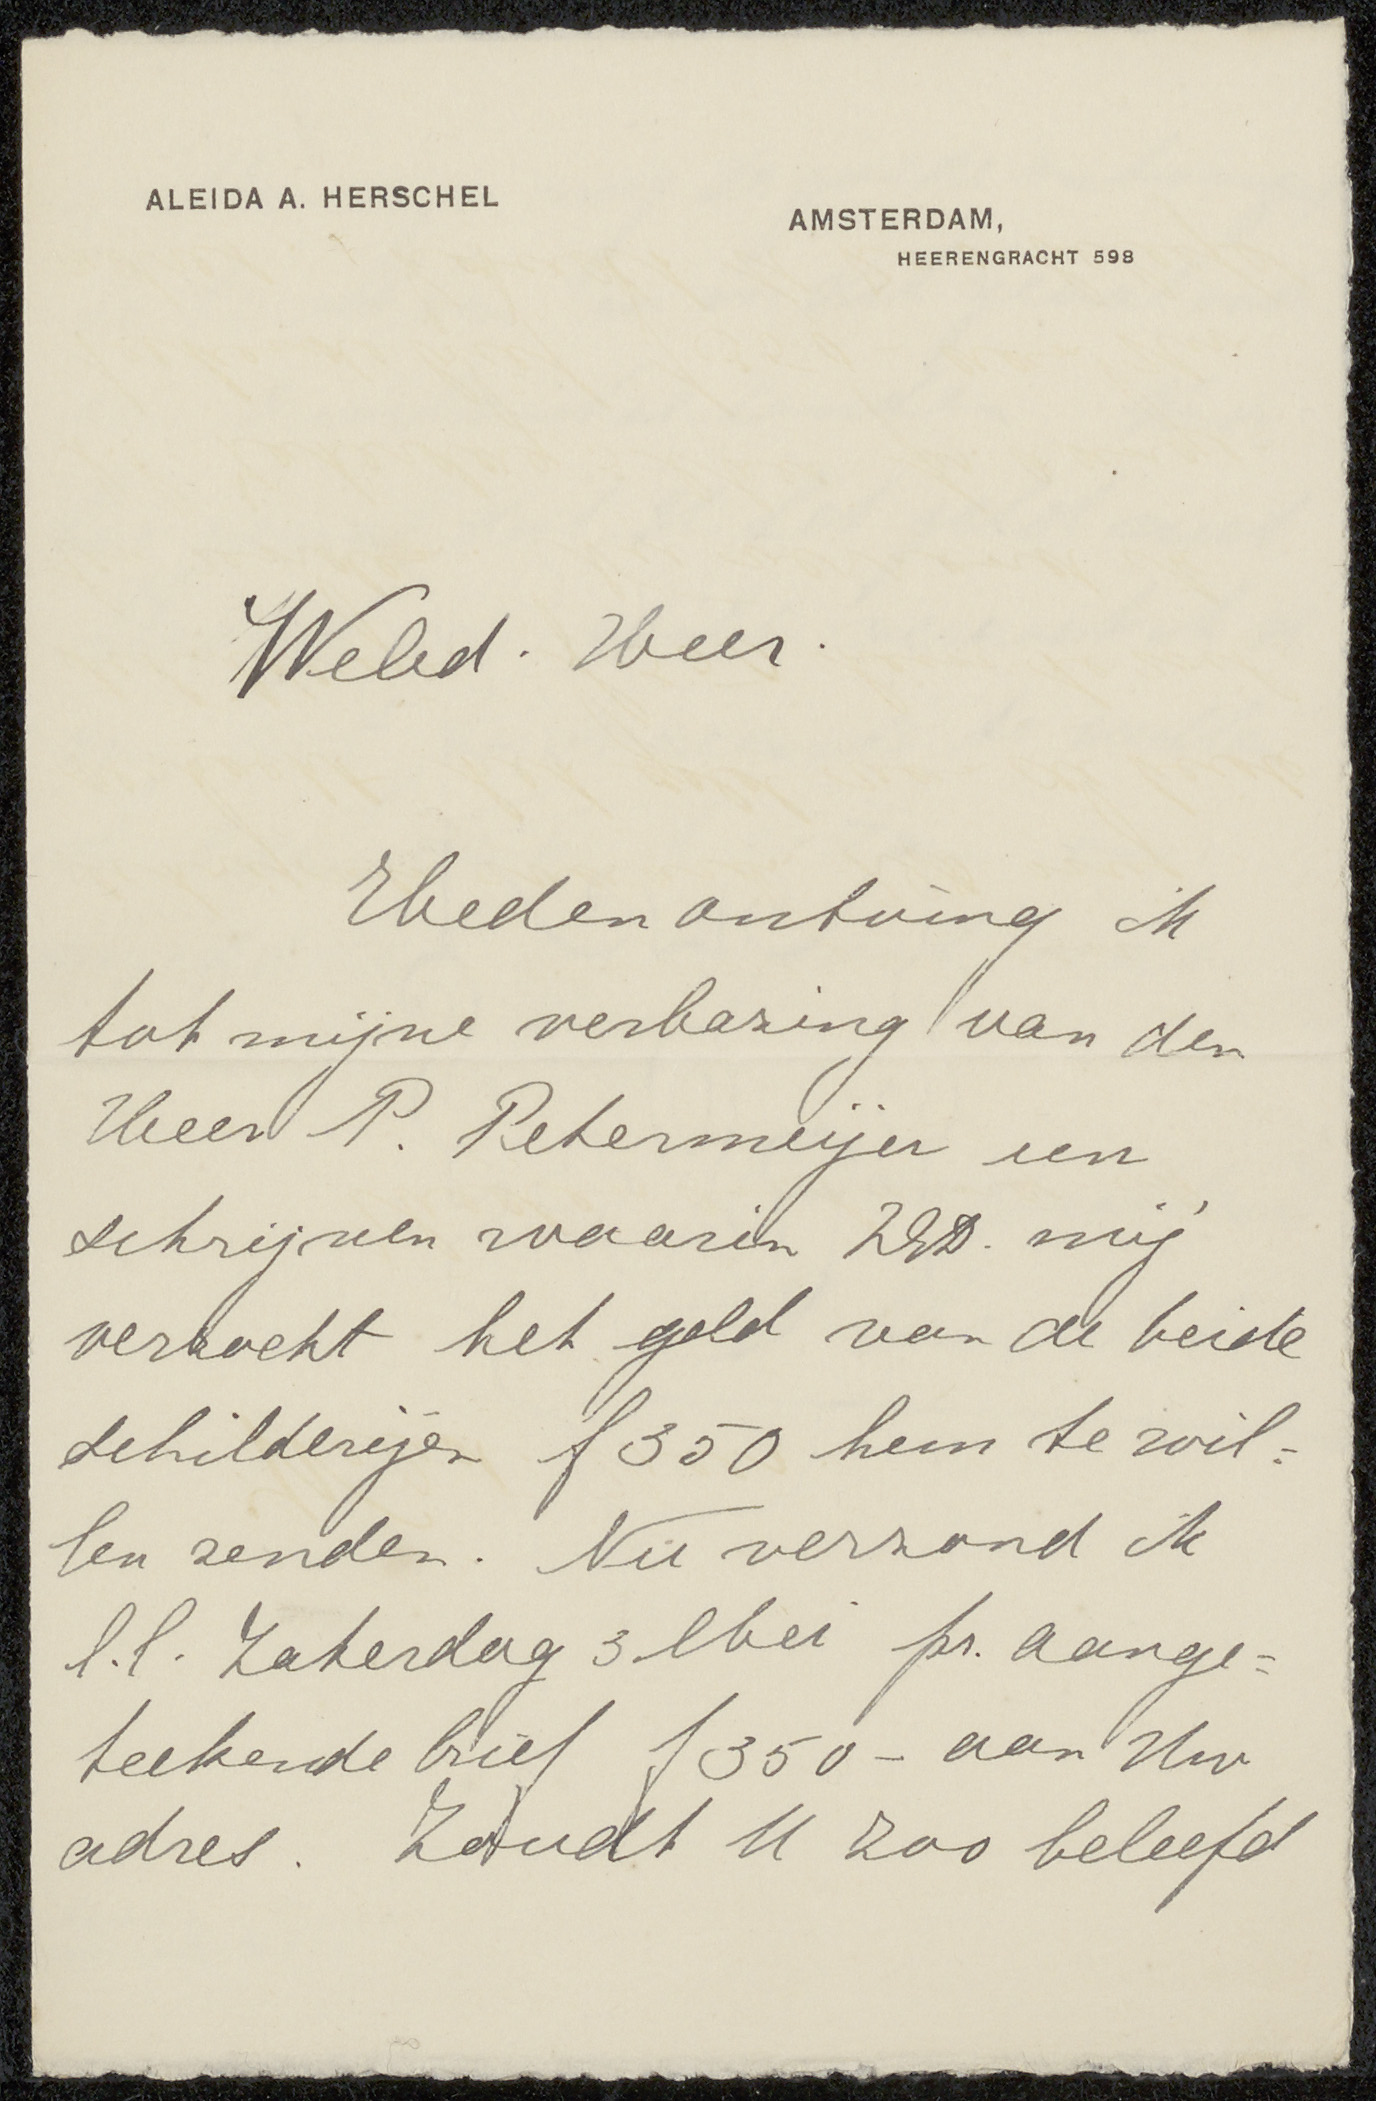 ALEIDA A. HERSCHEL
AMSTERDAM,
HEERENGRACHT 598
Weled. Heer.
Heden ontving ik
tot mijne verbazing van den
Heer P. Petermeijer een
schrijven waarin ZED. mij
verzocht het geld van de beide
schilderijen f 350 hem te wil=
len zenden. Nu verzond ik
l.l. Zaterdag 3 Mei pr. aange=
teekende brief f 350 - aan Uw
adres. Zoudt U zoo beleefd